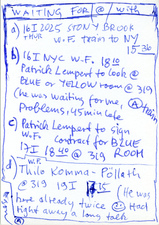 WAITING FOR @ with
a) 16 I 2025 STONY BROOK
W.F. TRAIN TO NY
15:36
b) 16 I NYC W.F. 18
Patrick Lempert to look @
BLUE or YELLOW room @ 319
(he was waiting for me,
Problems, 45 min late
c) Patrick Lempert to sign
W.F. contract for BLUE
17 I 18 40 @ 319 ROOM
d) Thilo Komma-Pöllath
@ 319 19 I 15 (He was
here already twice Had
right away a long talk